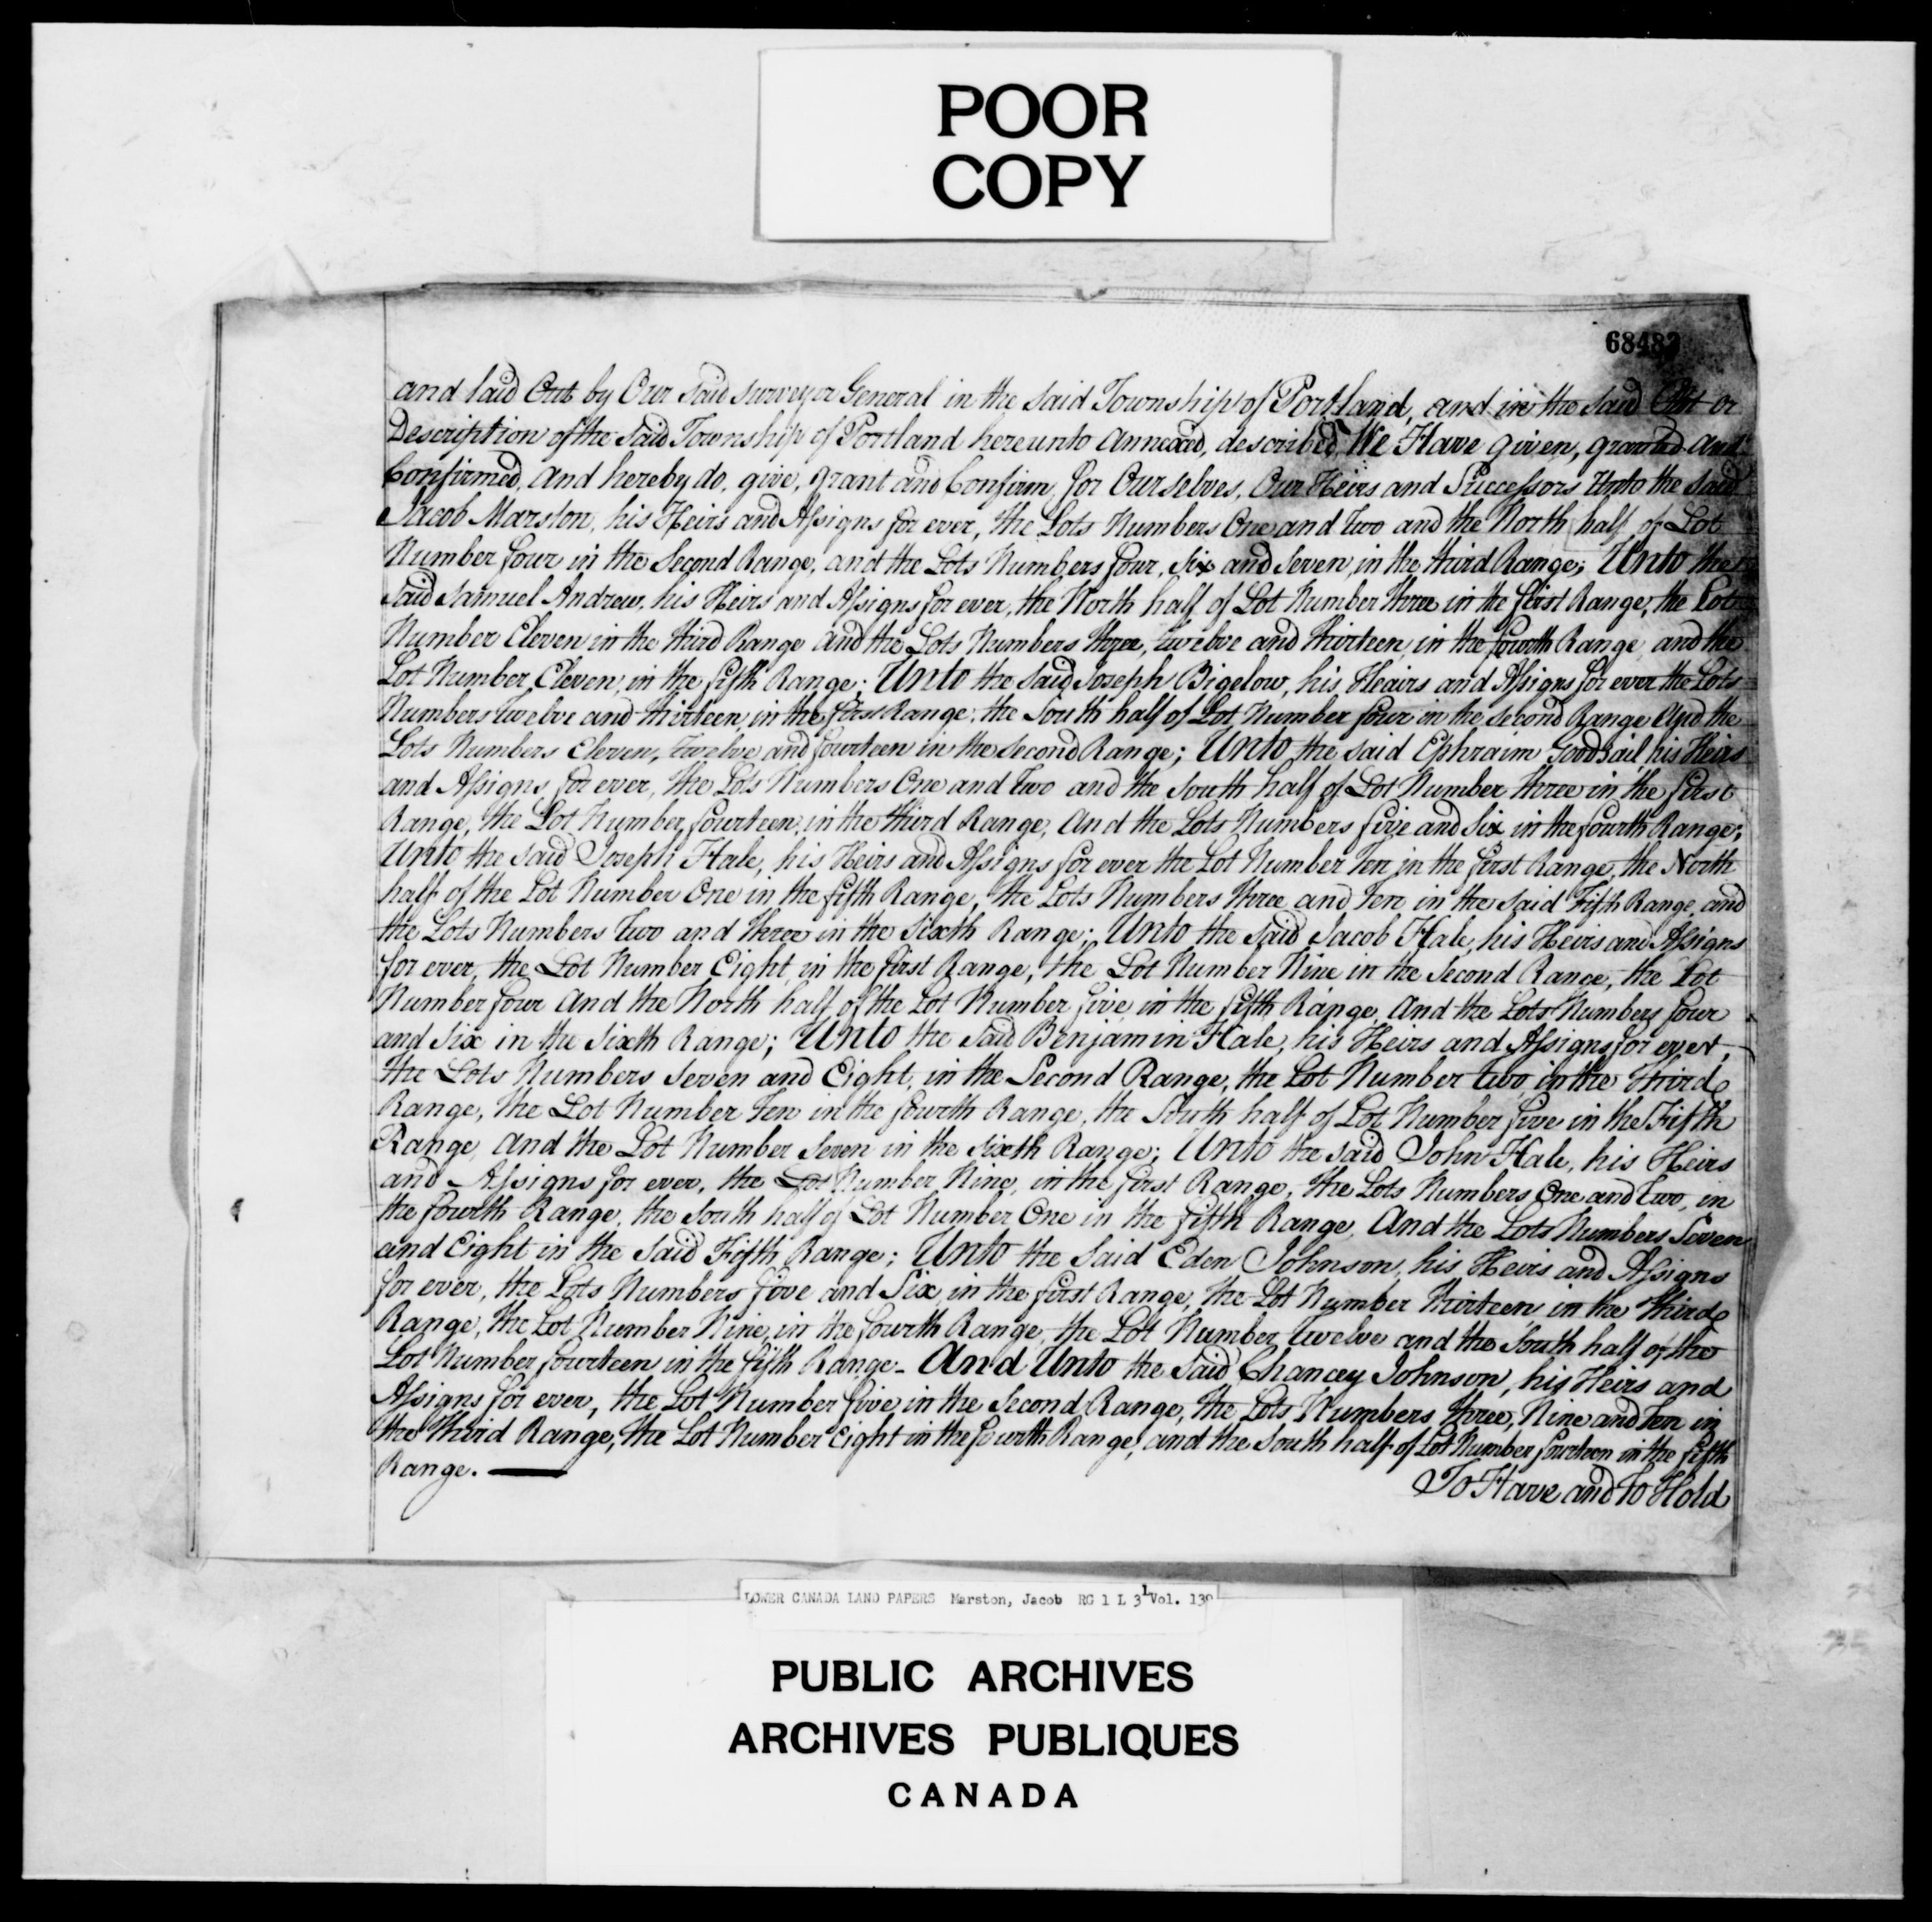 POOR
COPY
68482
and laid Out by Our said Surveyor General in the said Township of Portland, and in the said Plot or
Description of the said Township of Portland hereunto annexed, described, We Have given, granted and
Confirmed, and hereby do, give, grant and Confirm, for Ourselves, Our Heirs and Successors Unto the said
Jacob Marston, his Heirs and Assigns for ever, the Lots Numbers One and two and the North half of Lot
Number four in the Second Range, and the Lots Numbers four, six and seven, in the third Range; Unto the
said Samuel Andrew, his Heirs and Assigns for ever, the North half of Lot Number three in the first Range, the Lot
Number Eleven in the third Range and the Lots Numbers three, twelve and thirteen in the fourth Range, and the
Lot Number Eleven, in the fifth Range; Unto the said Joseph Bigelow, his Heairs and Assigns for ever the Lots
Numbers twelve and thirteen, in the first Range, the South half of Lot Number four in the second Range And the
Lots Numbers Eleven, twelve and fourteen in the second Range; Unto the said Ephraim Goodsail his Heirs
and Assigns for ever, the Lots Numbers One and two and the South half of Lot Number three in the first
Range, the Lot Number fourteen, in the third Range, and the Lots Numbers five and six in the fourth Range;
Unto the said Joseph Hale, his Heirs and Assigns for ever the Lot Number ten in the first Range, the North
half of the Lot Number One in the fifth Range, the Lots Numbers three and ten in the said Fifth Range, and
the Lots Numbers two and three in the Sixth Range; Unto the said Jacob Hale, his Heirs and Assigns
for ever, the Lot Number Eight, in the first Range, the Lot Number Nine in the second Range, the Lot
Number four and the North half of the Lot Number five in the fifth Range, and the Lots Numbers four
and six in the Sixth Range; Unto the said Benjamin Hale, his Heirs and Assigns for ever,
the Lots Numbers Seven and Eight, in the Second Range, the Lot Number two in the third
Range, the Lot Number ten in the fourth Range, the South half of Lot Number five in the Fifth
Range, and the Lot Number Seven in the sixth Range; Unto the said John Hale, his Heirs
and Assigns for ever, the Lot Number Nine, in the first Range, the Lots Numbers One and two, in
the fourth Range, the South half of Lot Number One in the fifth Range, And the Lots Numbers Seven
and Eight in the said Fifth Range; Unto the said Eden Johnson, his Heirs and Assigns
for ever, the Lots Numbers five and Six, in the first Range, the Lot Number thirteen in the third
Range, the Lot Number Nine, in the fourth Range, the Lot Number Twelve and the South half of the
Lot Number fourteen in the fifth Range - And Unto the said Chancey Johnson, his Heirs and
Assigns for ever, the Lot Number five in the Second Range, the Lots Numbers three, Nine and ten in
the third Range, the Lot Number Eight in the fourth Range, and the South half of Lot Number fourteen in the fifth
Range.
To Have and to Hold
LOWER CANADA LAND PAPERS Marston, Jacob RG 1 L 3 L Vol. 139
PUBLIC ARCHIVES
ARCHIVES PUBLIQUES
CANADA